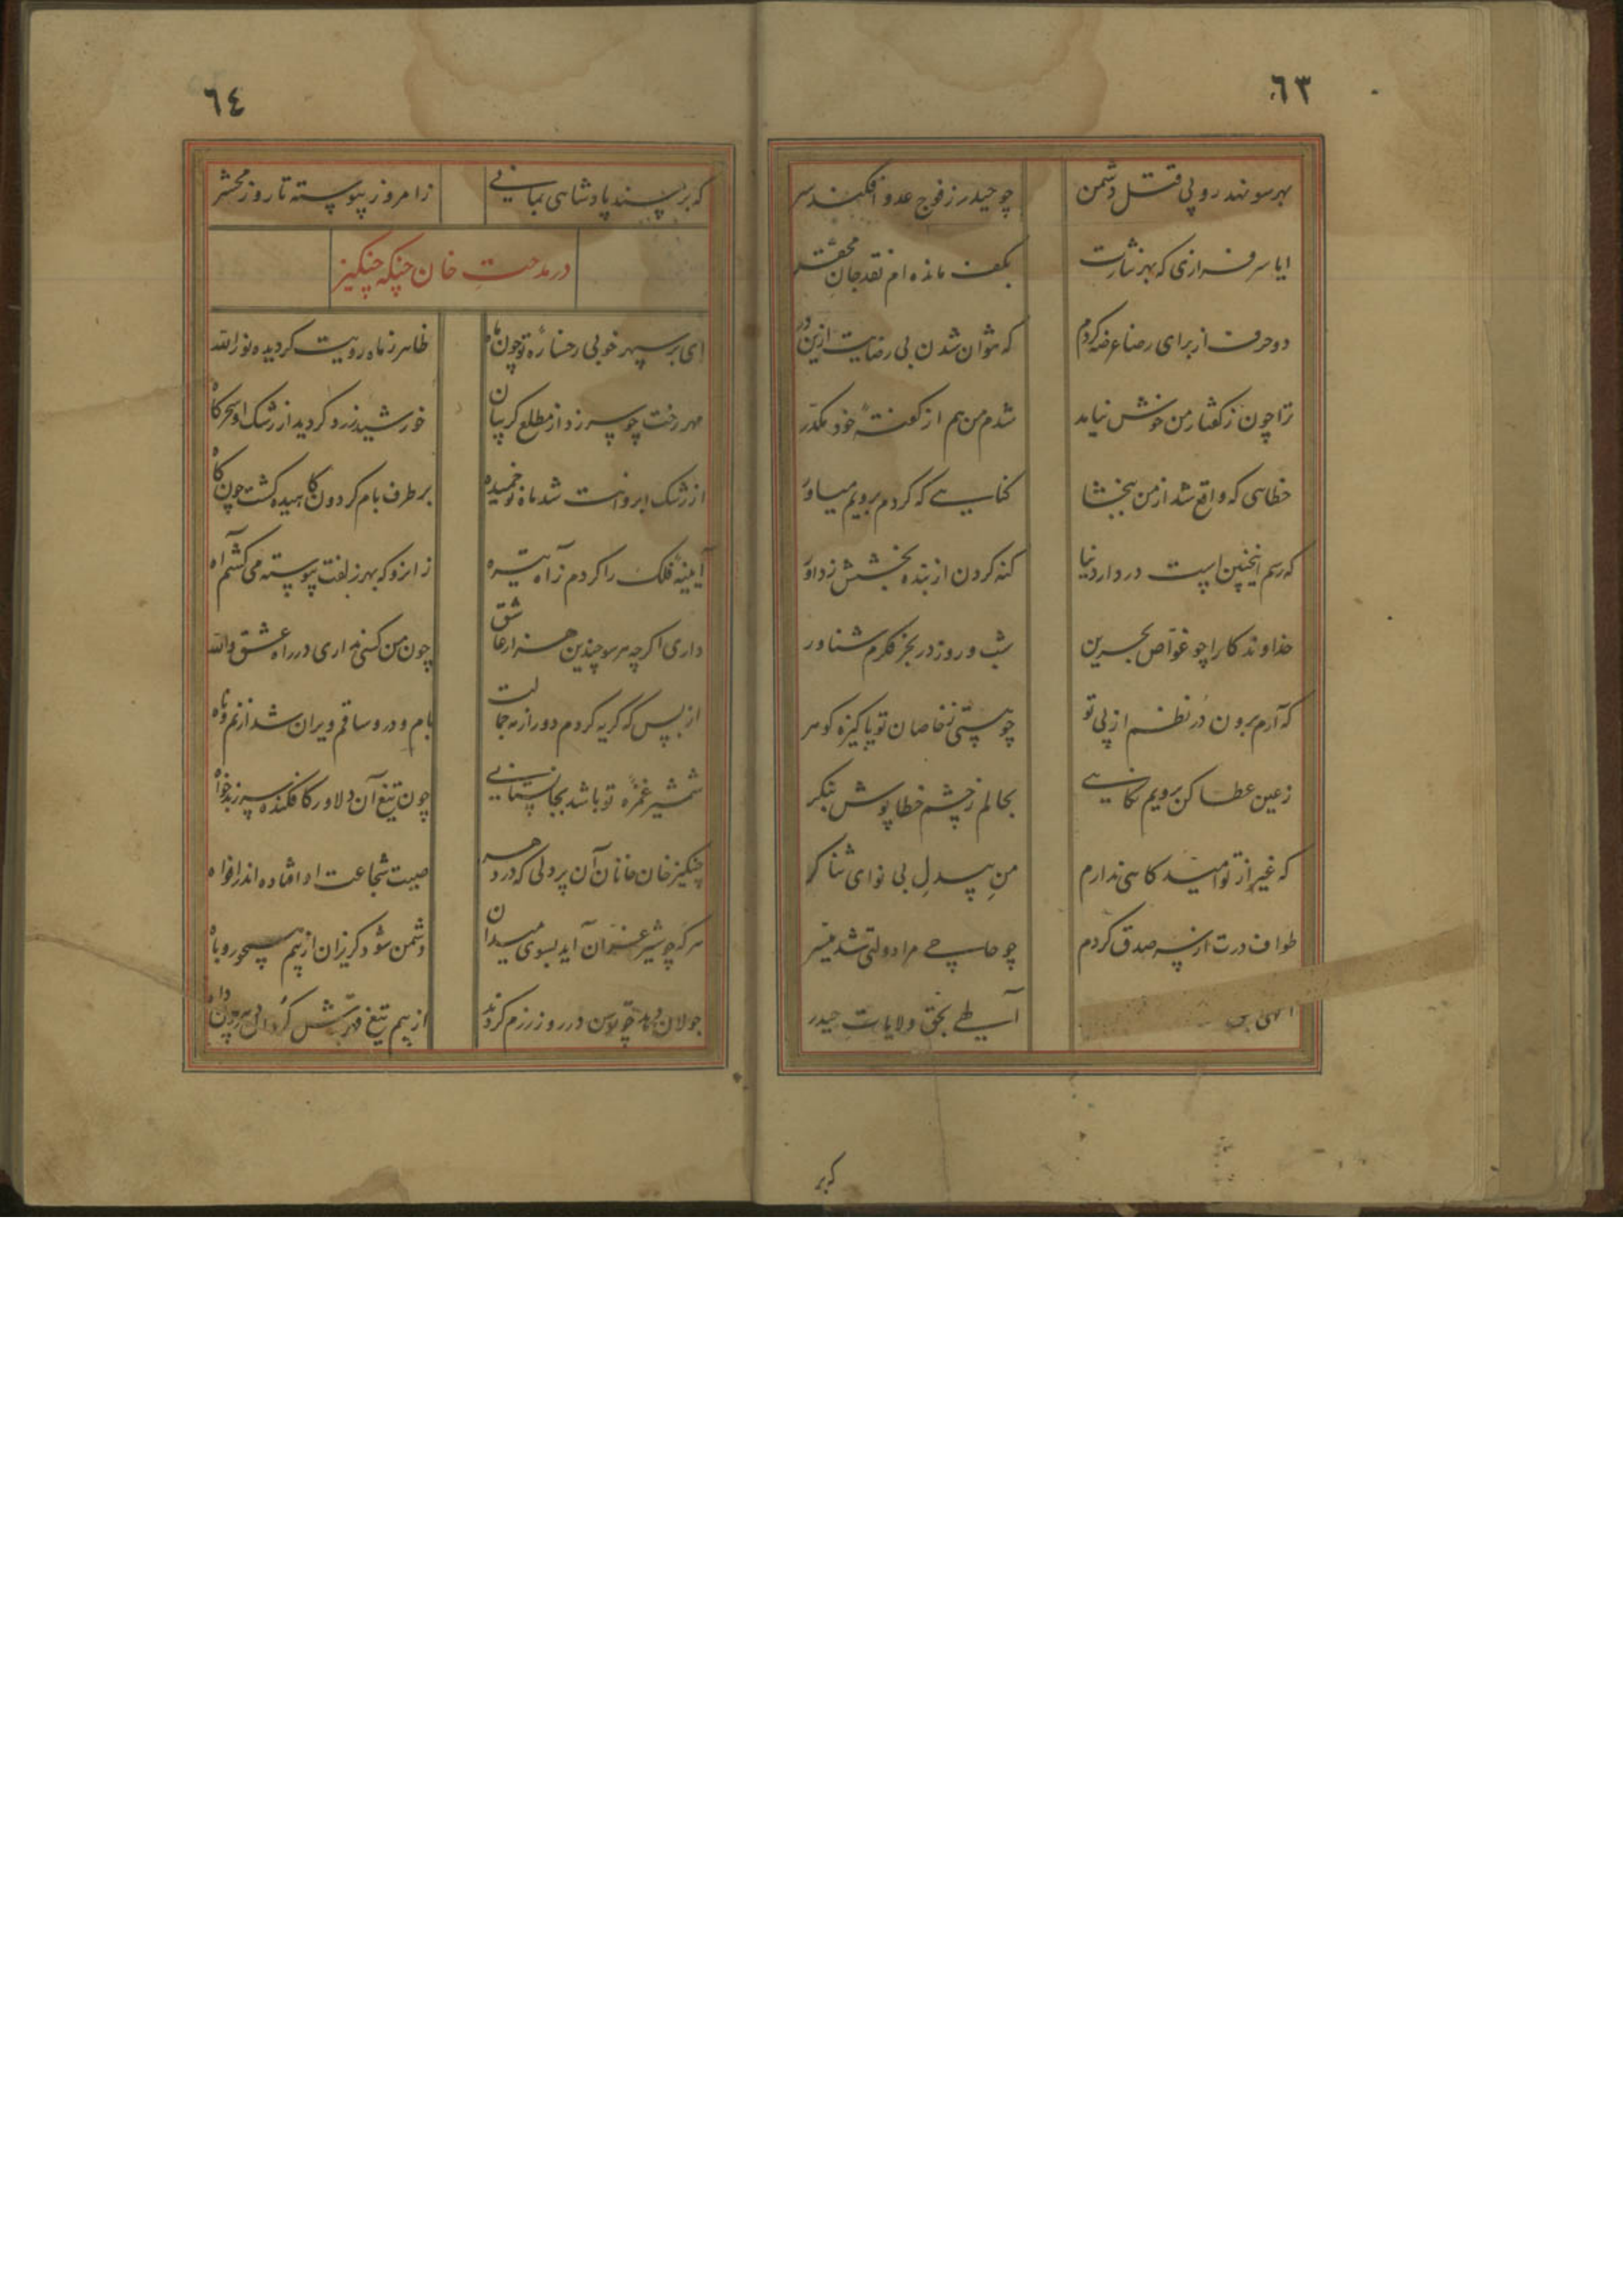 ٦٣
بهر سو نهد رو پی قتل دشمن
چو حیدر ز فوج عدو افکند سر
ایا سرفرازی که بهر نثارت
بکف مانده ام نقد جان محقر
دو حرف از برای رضا عرضه کردم
که نتوان شدن بی رضایت ازین در
ترا چون ز گفتار من خوش نیامد
شدم من هم از گفتهٔ خود مکدر
خطایی که واقع شد از من ببخشا
گناهی که کردم برویم میاور
که رسم اینچنین است در دار دنیا
گنه کردن از بنده بخشش ز داور
خداوندکارا چو غواص بحرین
شب و روز در بحر فکرم شناور
که آرم برون در نظم از پی تو
چو هستی ز خاصان تو پاکیزه گوهر
ز عین عطا کن برویم نگاهی
بحالم ز چشم خطاپوش بنگر
که غیر از تو امیدگاهی ندارم
من بیدل بی نوای ثناگر
طواف درت از سر صدق کردم
چو حاجی مرا دولتی شد میسر
الهی بحق
بحق ولایات حیدر
که بر
٦٤
که بر مسند پادشاهی بمانی
ز امروز پیوسته تا روز محشر
در مدحت خان جنکه چنگیز
ای بر سپهر خوبی رخسارهٔ تو چون ماه
ظاهر ز ماه رویت گردیده نور الله
مهر رخت چو سر زد از مطلع گریبان
خورشید زرد گردید از رشک او سحرگاه
از رشک ابروانت شد ماه نو خمیده
بر طرف بام گردون کاهیده گشت چون کاه
آیینهٔ فلک را کردم ز آه تیره
ز انرو که بهر زلفت پیوسته می کشم آه
داری اگرچه هر سو چندین هزار عاشق
چون من کسی نداری در راه عشق والله
از بس که گریه کردم دور از مه جمالت
بام و در وساقم ویران شد از نم و
شمشیر غمزهٔ تو باشد بجان ستانی
چون تیغ آن دلاور کافکنده سر ز بدخواه
چنگیز خان خانان آن پر دلی که در دهر
صیت شجاعت او افتاده اندر افواه
هر گه چو شیر غران آید بسوی میدان
دشمن شود گریزان از بیم همچو روباه
جولان دهد چو توسن در روز رزم گردند
از بیم تیغ قهرش گردان